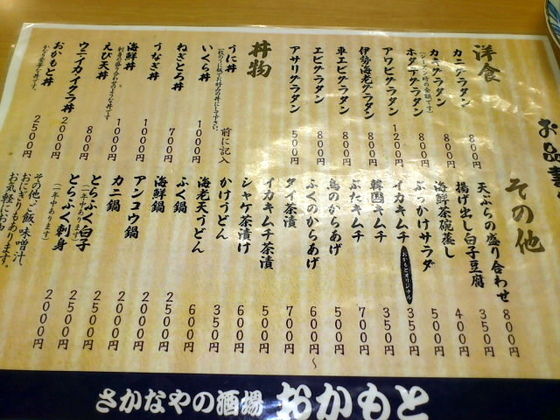 お品書
洋食
カニグラタン 800円
カキグラタン 800円
(シーズン時の金額です)
ホタテグラタン 800円
アワビグラタン 1200円
伊勢海老グラタン 800円
車エビグラタン 800円
エビグラタン 800円
アサリグラタン 500円
丼物
うに丼 前に記入
いくら丼 1000円
ねぎとろ丼 700円
うなぎ丼 1000円
海鮮丼 1000円
えび天丼 800円
ウニイカイクラ丼 2000円
おかもと丼 2500円
その他
天ぷらの盛り合わせ 800円
揚げ出し白子豆腐 350円
海鮮茶碗蒸し 400円
ぶっかけサラダ 500円
イカキムチ おかもとオリジナル 350円
韓国キムチ 350円
ぶたキムチ 700円
鳥のからあげ 500円
ふぐのからあげ 600円～
タイ茶漬 700円
イカキムチ茶漬 500円
シャケ茶漬け 600円
かけうどん 350円
海老天うどん 600円
ふぐ鍋 2500円
海鮮鍋 2500円
アンコウ鍋 2000円
カニ鍋 2500円
とらふぐ白子 2000円
(一年中あります)
とらふぐ刺身 2000円
(一年中あります)
その他、ご飯、味噌汁、
おにぎりもあります。
お気軽に
さかなやの酒場 おかもと